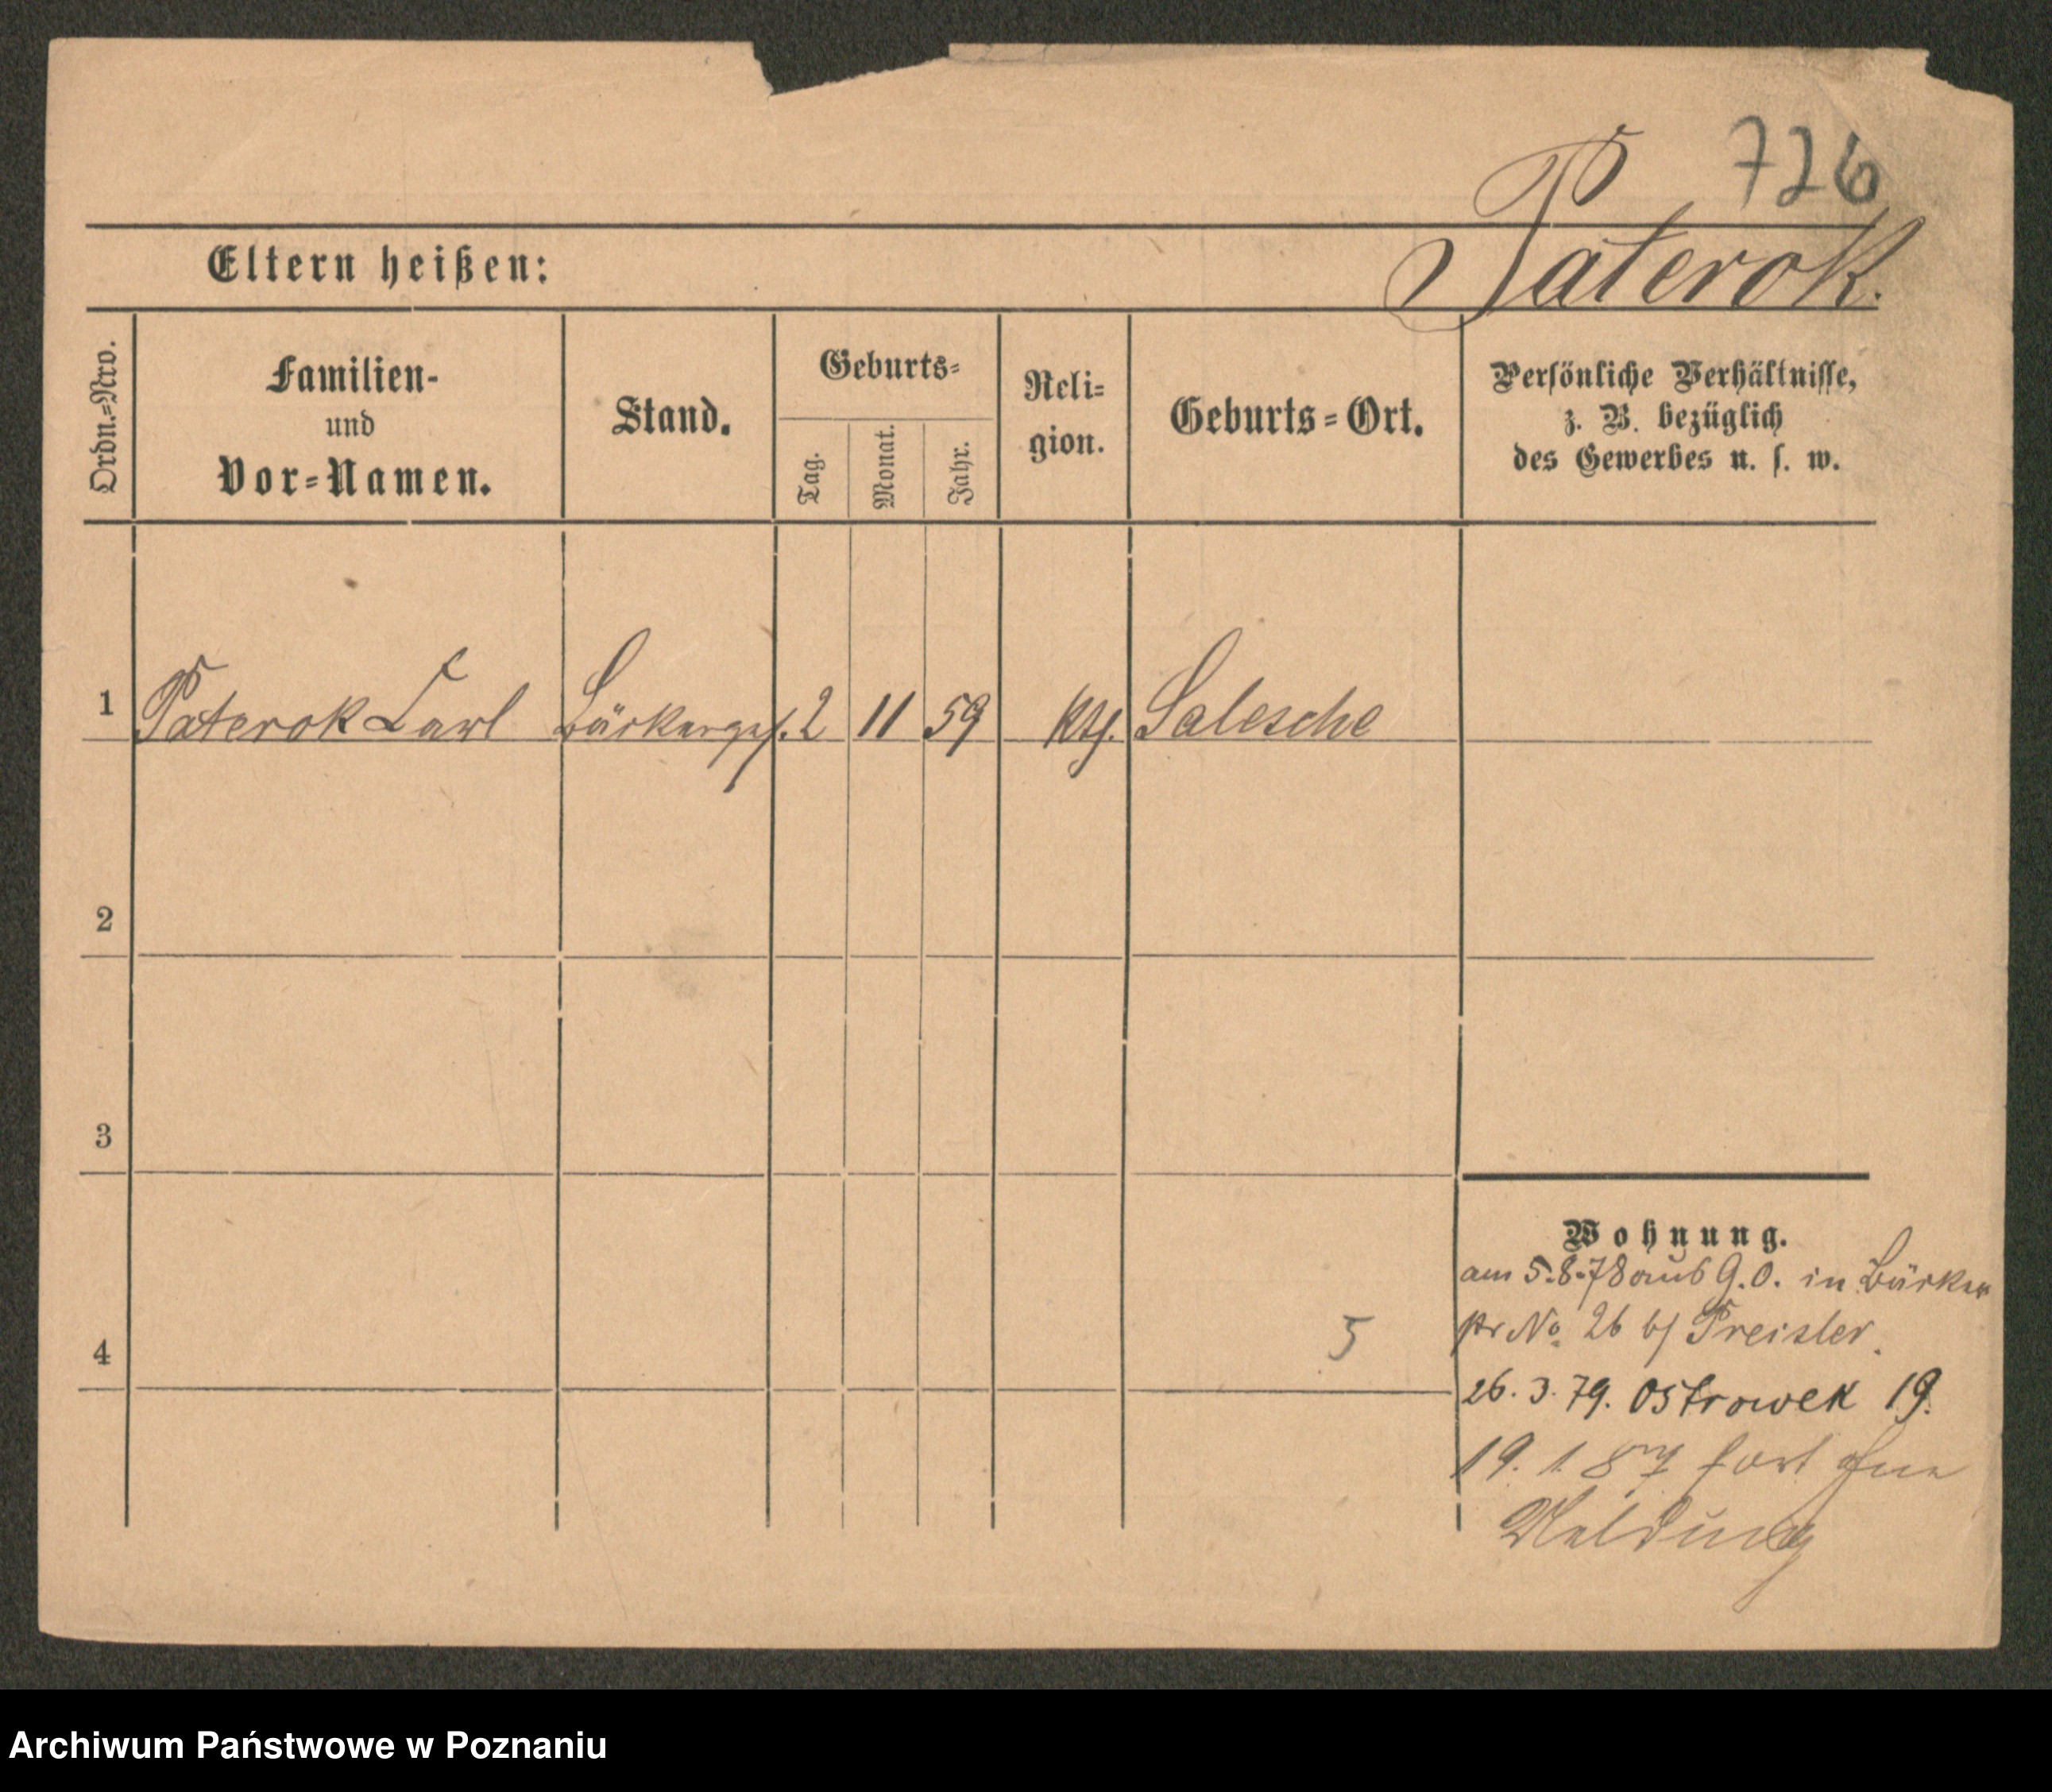 726
Paterok.
Eltern heißen:
Ordn.=Nro.
Familien-
und
Vor=Namen.
Stand.
Geburts=
Tag.
Monat.
Jahr.
Reli=
gion.
Geburts=Ort.
Persönliche Verhältnisse,
z. B. bezüglich
des Gewerbes u. s. w.
1 Paterok Carl Bäckerges. 2 11 59 kth. Salesche
2
3
4
5
Wohnung.
am 5.8.78 aus G.O. in Bäcker
pr No. 26 b/ Preisler.
26. 3. 79. Ostrowek 19.
19. 1. 87 fort ohne
Meldung
Archiwum Państwowe w Poznaniu